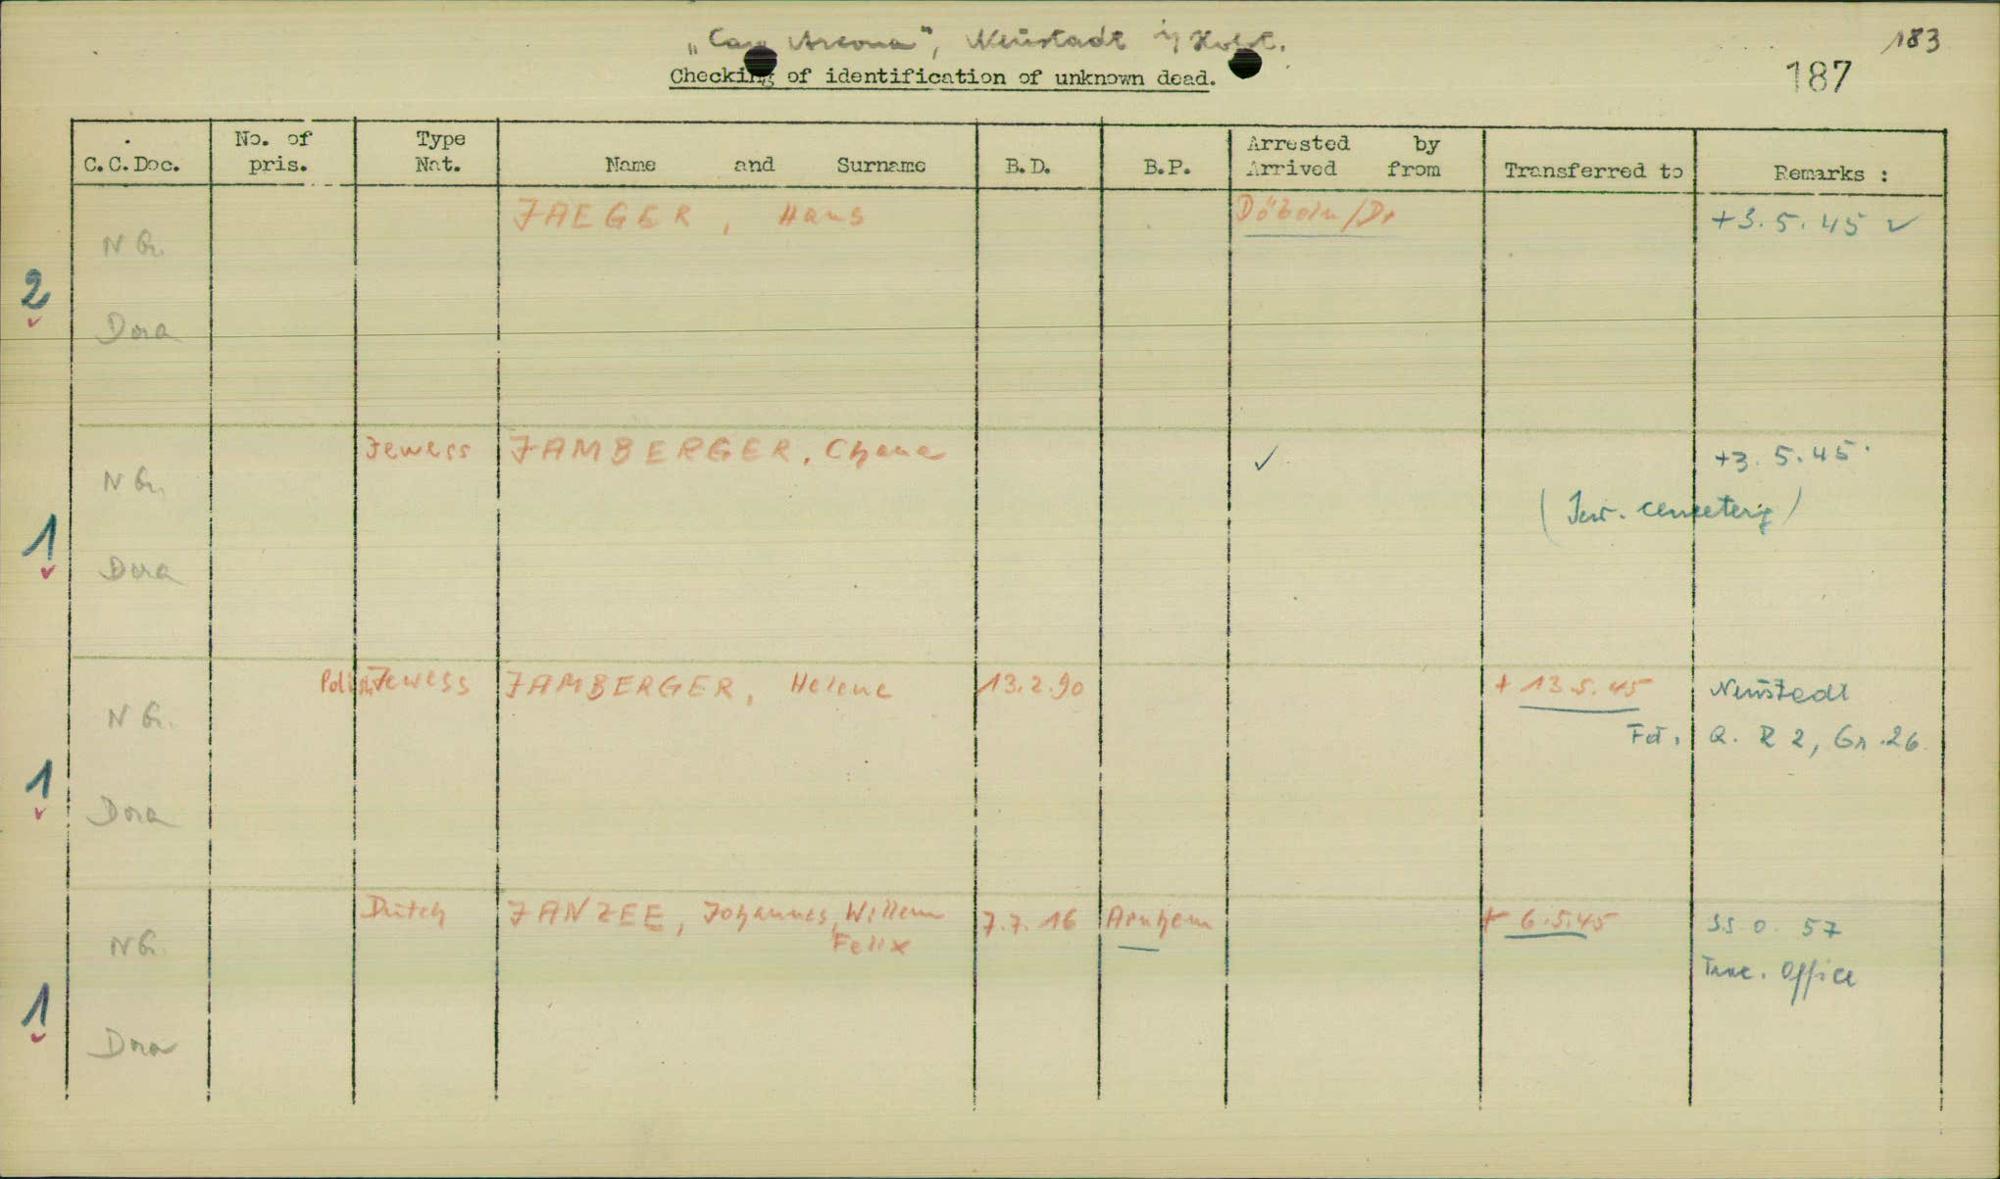 „Cap Arcona", Neustadt i/ Holst. 183
Checking of identification of unknown dead. 187
C.C.Doc. No. of pris. Type Nat. Name and Surname B.D. B.P. Arrested by Arrived from Transferred to Remarks :
2 N G. JAEGER, Hans Döbeln/Dr +3.5.45
Dora
1 N G. Jewess JAMBERGER, Chana +3.5.45.
(Jew. cemetery)
Dora
1 N G. Polish Jewess JAMBERGER, Helene 13.2.90 + 13.5.45 Neustadt
Fdt. Q. R 2, Gr. 26.
Dora
1 N G. Dutch JANZEE, Johannes, Willem 7.7.16 Arnhem + 6.5.45 S.S.O. 57
Felix
Trac. Office
Dora